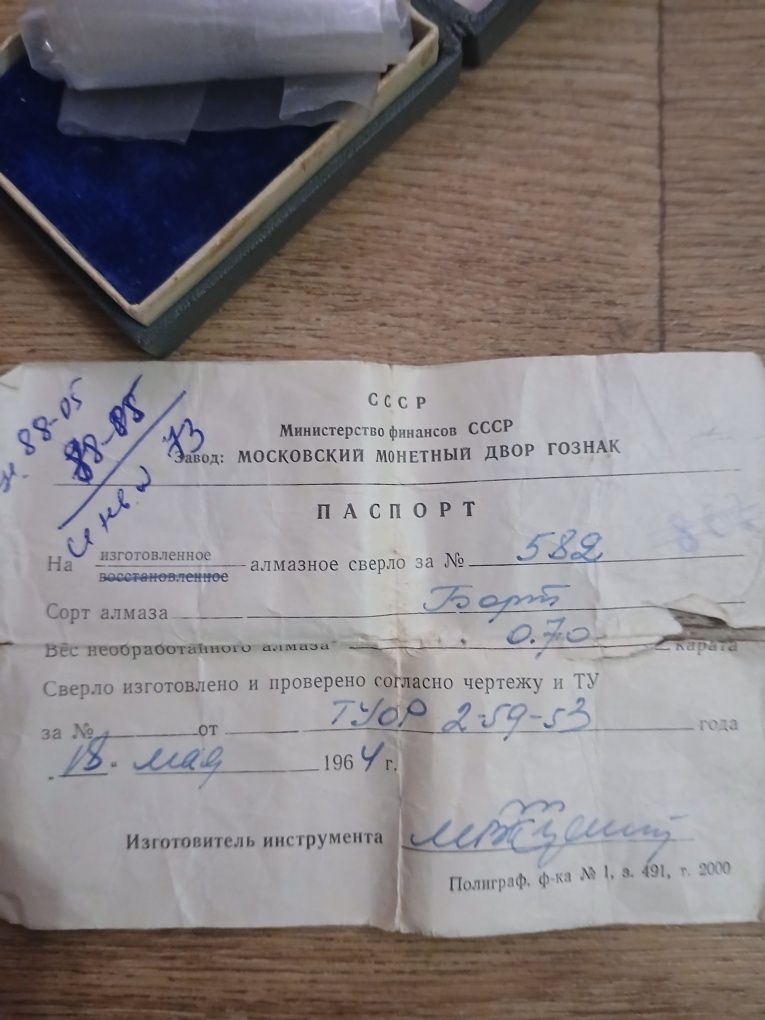 н. 88-05
88-85
инв. 73
СССР
Министерство финансов СССР
Завод: МОСКОВСКИЙ МОНЕТНЫЙ ДВОР ГОЗНАК
ПАСПОРТ
На изготовленное
восстановленное алмазное сверло за № 582
Сорт алмаза Борт
Вес необработанного алмаза 0.70 карата
Сверло изготовлено и проверено согласно чертежу и ТУ
за № от ТУОР 2-59-53 года
„18" мая 1964 г.
Изготовитель инструмента
Полиграф. ф-ка № 1, з. 491, т. 2000